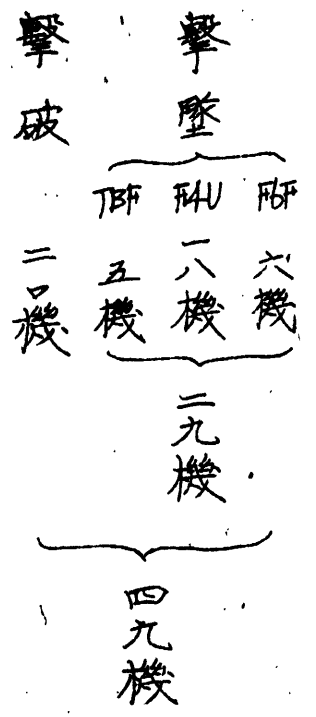 擊墜
F6F 六機
F4U 一八機
TBF 五機
二九機
擊破 二〇機
四九機